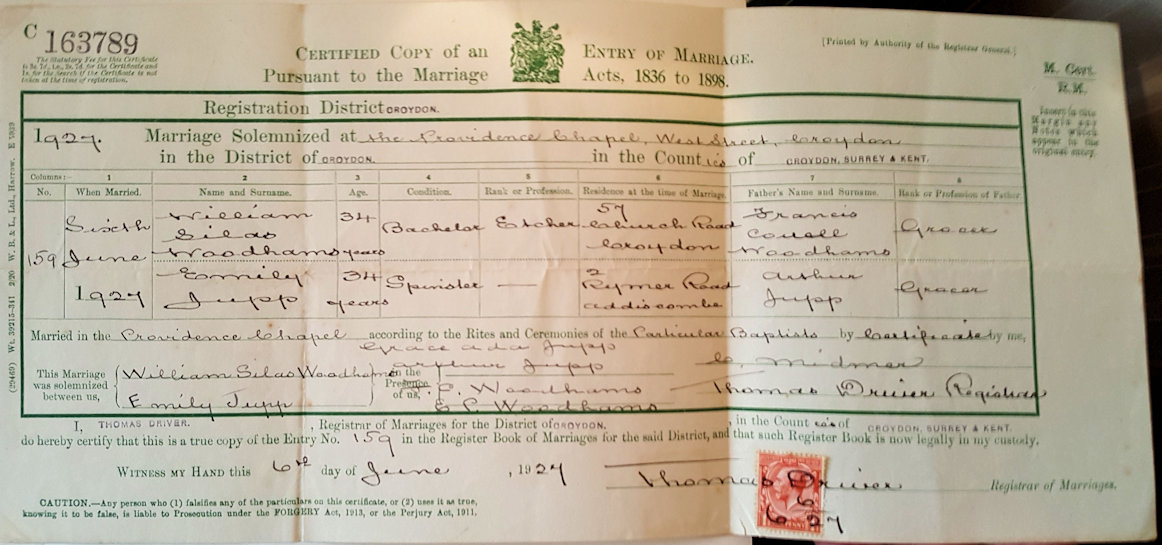 C 163789
The Statutory Fee for this Certificate
is 2s. 7d., i.e., 2s. 7d. for the Certificate and
1s. for the Search if the Certificate is not
taken at the time of registration.
CERTIFIED COPY OF AN ENTRY OF MARRIAGE.
Pursuant to the Marriage Acts, 1836 to 1898.
[Printed by Authority of the Registrar General.]
M. Cert.
R.M.
Registration District CROYDON.
1927. Marriage Solemnized at the Providence Chapel, West Street, Croydon
in the District of CROYDON. in the Counties of CROYDON, SURREY & KENT.
Columns:— 1 2 3 4 5 6 7 8
No. When Married. Name and Surname. Age. Condition. Rank or Profession. Residence at the time of Marriage. Father's Name and Surname. Rank or Profession of Father.
159 Sixth June 1927
William Silas Woodhams 34 years Bachelor Etcher 57 Church Road Croydon Francis Woodhams Grocer
Emily Jupp 34 years Spinster — 2 Rymer Road Addiscombe Arthur Jupp Grocer
Married in the Providence Chapel according to the Rites and Ceremonies of the Particular Baptists by Certificate by me,
This Marriage was solemnized between us,
William Silas Woodhams
Emily Jupp
in the Presence of us,
Grace Ada Jupp
Arthur Jupp
E. Woodhams
E P. Woodhams
C. Midmer
Thomas Driver Registrar
I, THOMAS DRIVER. , Registrar of Marriages for the District of CROYDON. , in the Counties of CROYDON, SURREY & KENT.
do hereby certify that this is a true copy of the Entry No. 159 in the Register Book of Marriages for the said District, and that such Register Book is now legally in my custody.
WITNESS MY HAND this 6th day of June , 1927 Thomas Driver Registrar of Marriages.
6 6 27
CAUTION.—Any person who (1) falsifies any of the particulars on this certificate, or (2) uses it as true,
knowing it to be false, is liable to Prosecution under the FORGERY Act, 1913, or the Perjury Act, 1911.